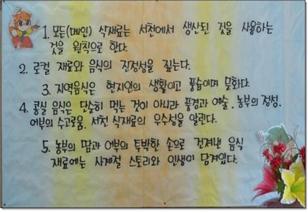 1. 모든(메인) 식재료는 서천에서 생산된 것을 사용하는
것을 원칙으로 한다.
2. 로컬 재료와 음식의 진정성을 깊는다.
3. 지역음식은 현지인의 생활이고 풍습이며 문화다.
4. 음식은 단순히 먹는 것이 아니라 풍경과 예술, 농부의 정성,
어부의 수고로움, 서천 식재료의 우수성을 알린다.
5. 농부의 땀과 어부의 투박한 손으로 건져낸 음식
재료에는 사계절 스토리와 인생이 담겨있다.